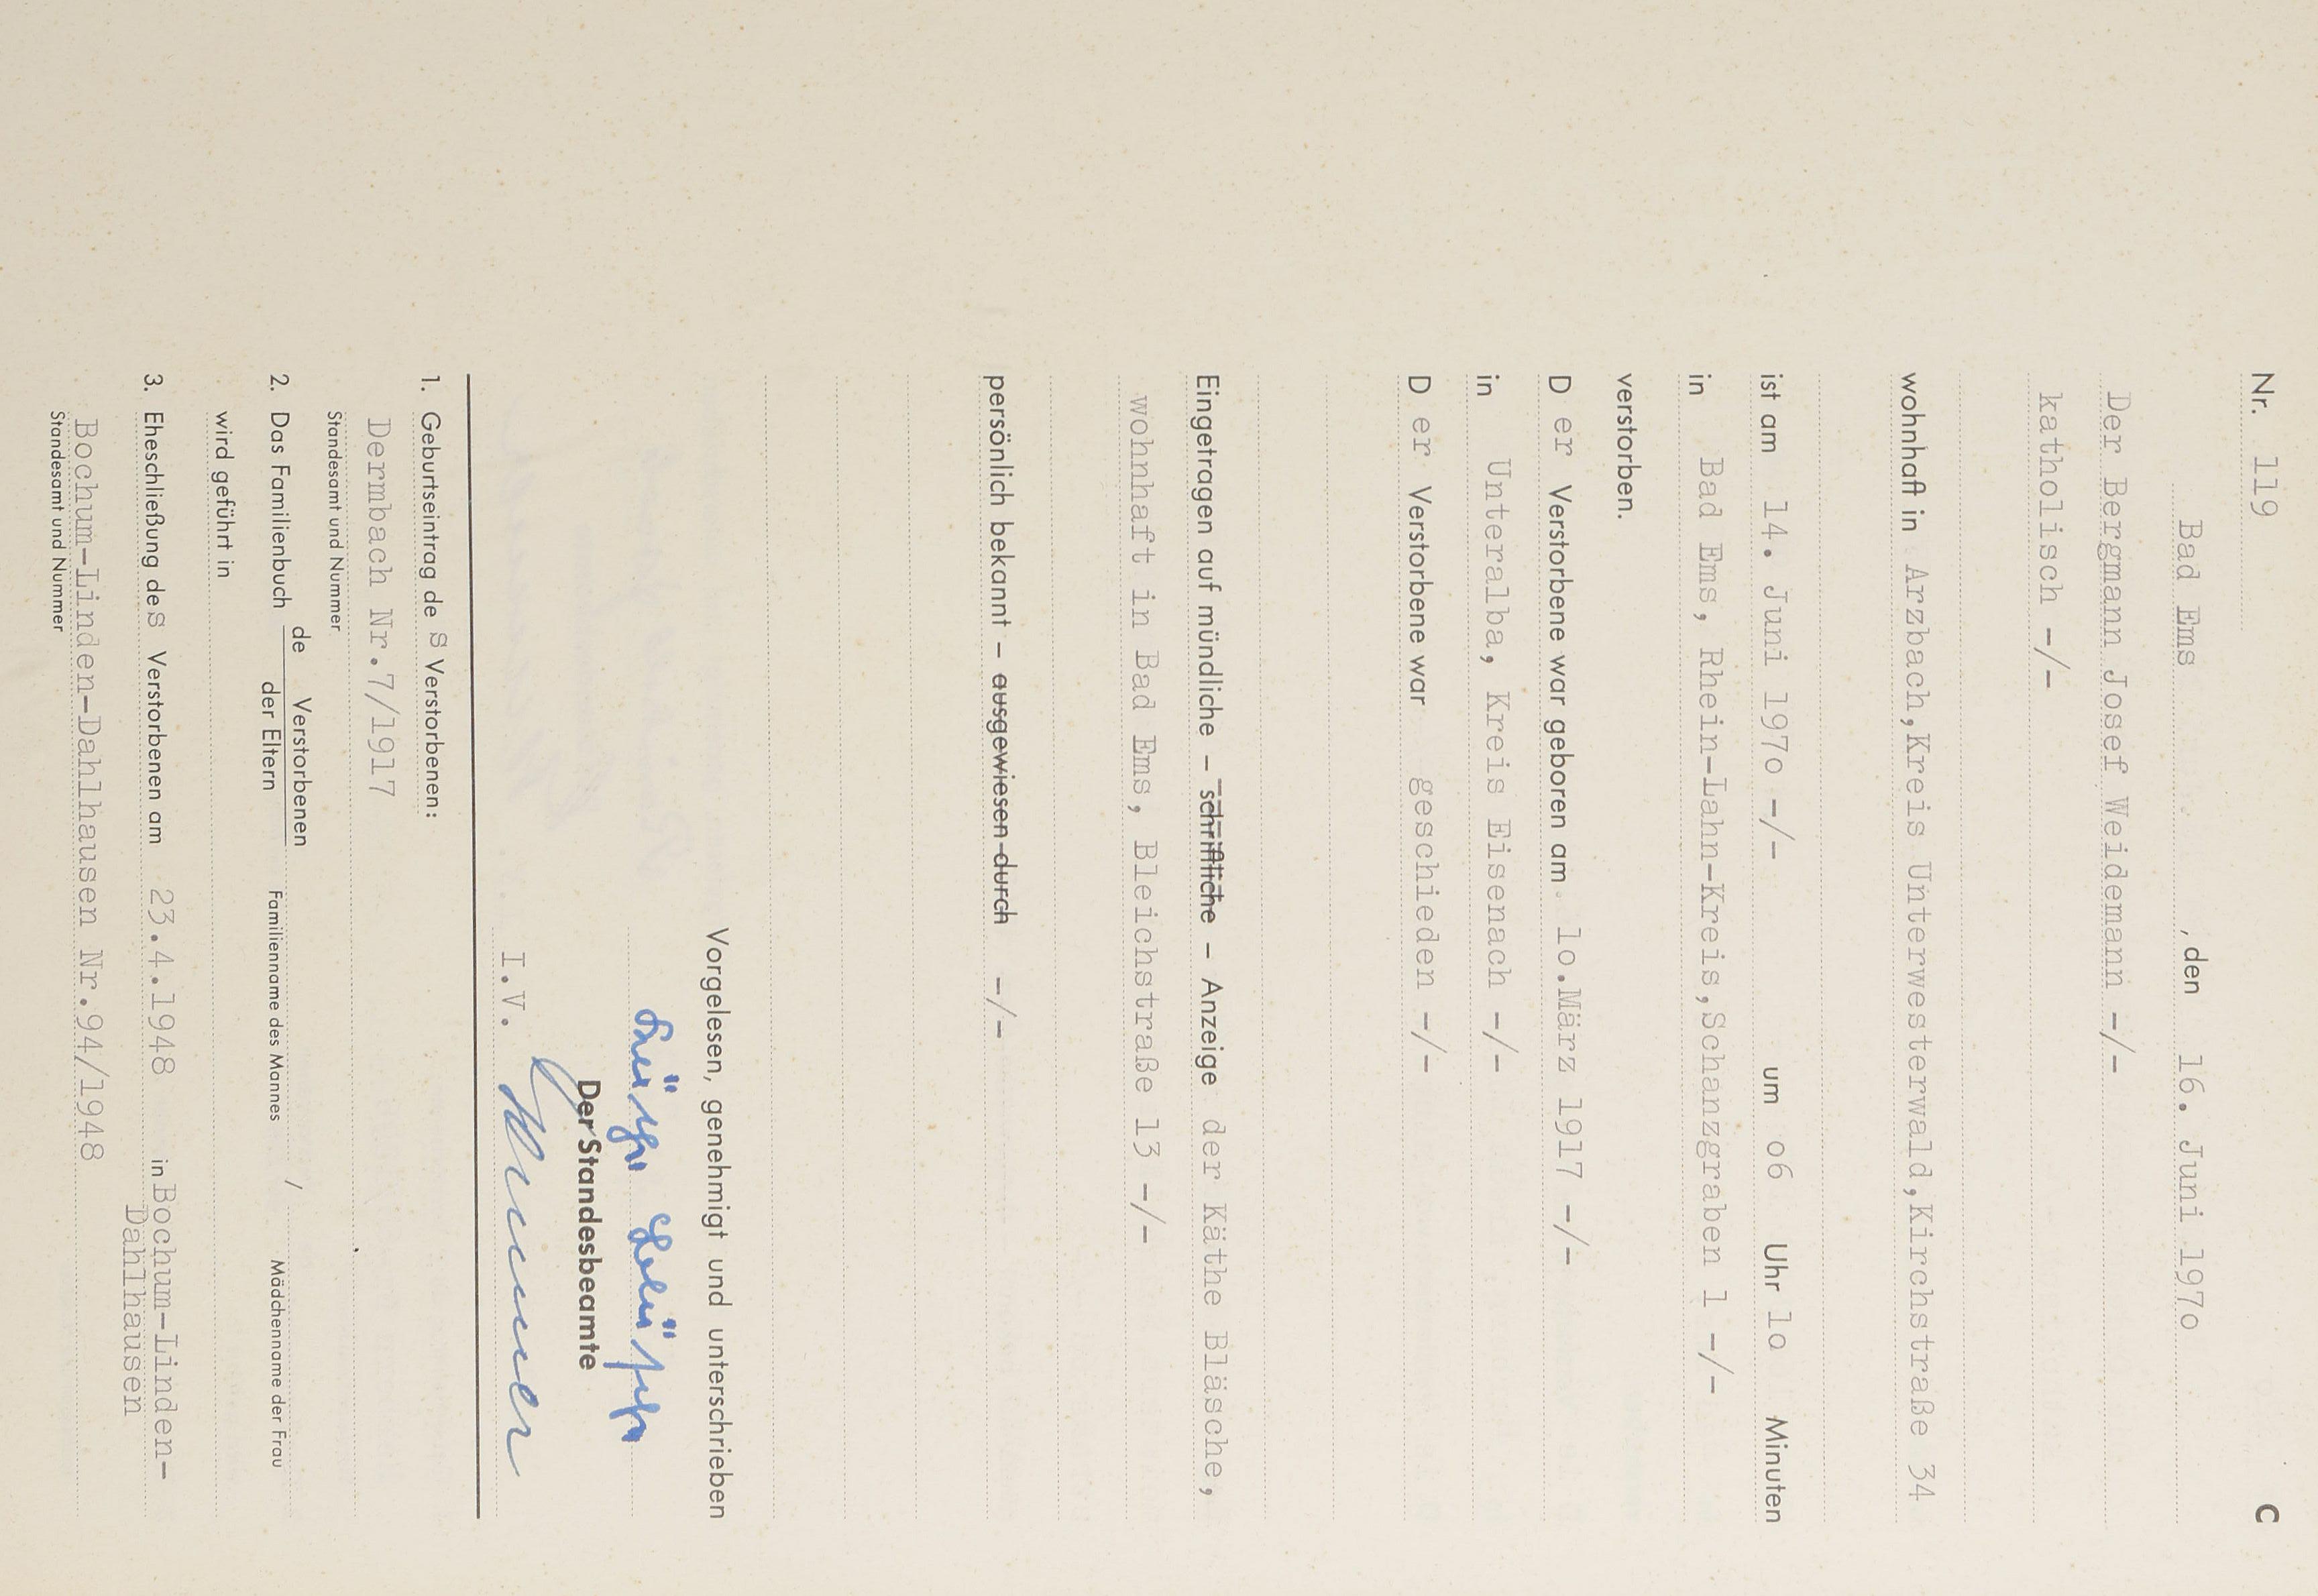 Nr. 119
C
Bad Ems, den 16. Juni 197o
Der Bergmann Josef Weidemann -/-
katholisch -/-
wohnhaft in Arzbach,Kreis Unterwesterwald,Kirchstraße 34
ist am 14. Juni 197o -/- um o6 Uhr lo Minuten
in Bad Ems, Rhein-Lahn-Kreis,Schanzgraben 1 -/-
verstorben.
D er Verstorbene war geboren am lo.März 1917 -/-
in Unteralba, Kreis Eisenach -/-
D er Verstorbene war geschieden -/-
Eingetragen auf mündliche – schriftliche – Anzeige der Käthe Bläsche,
wohnhaft in Bad Ems, Bleichstraße 13 -/-
persönlich bekannt – ausgewiesen durch -/-
Vorgelesen, genehmigt und unterschrieben
Der Standesbeamte
I.V.
1. Geburtseintrag de s Verstorbenen:
Dermbach Nr.7/1917
Standesamt und Nummer
2. Das Familienbuch de Verstorbenen
der Eltern
Familienname des Mannes / Mädchenname der Frau
wird geführt in
3. Eheschließung des Verstorbenen am 23.4.1948 in Bochum-Linden-
Dahlhausen
Bochum-Linden-Dahlhausen Nr.94/1948
Standesamt und Nummer